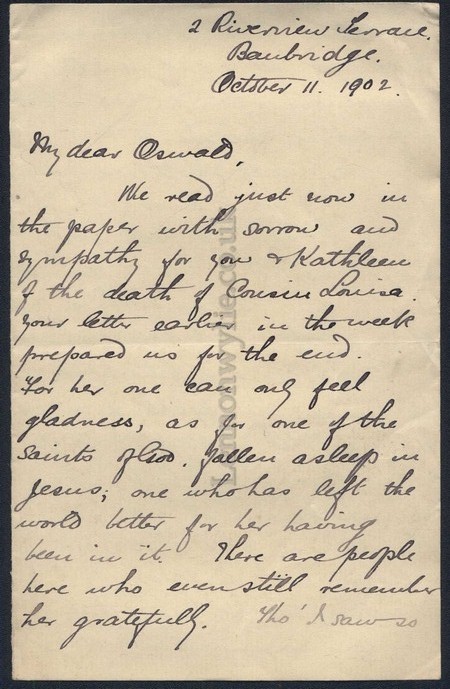 2 Riverview Terrace.
Banbridge.
October 11. 1902.
My dear Oswald,
We read just now in
the paper with sorrow and
sympathy for you & Kathleen
of the death of Cousin Louisa.
Your letter earlier in the week
prepared us for the end.
For her one can only feel
gladness, as for one of the
saints of God. fallen asleep in
Jesus; one who has left the
world better for her having
been in it. There are people
here who even still remember
her gratefully. Tho' I saw so